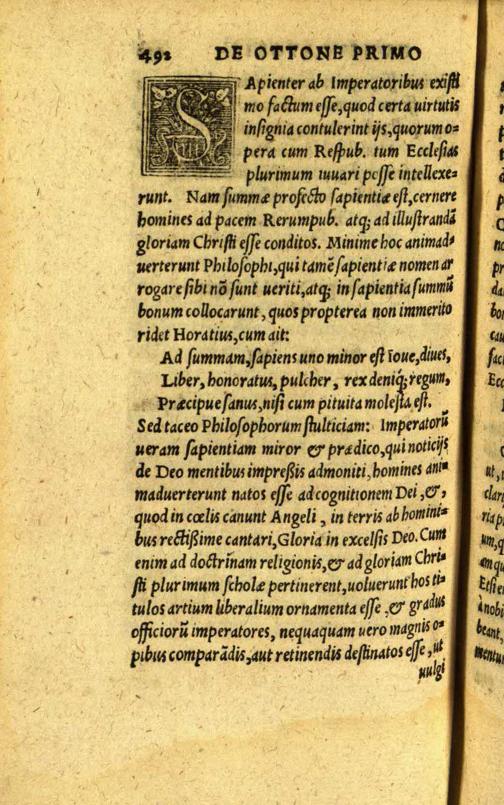 492 DE OTTONE PRIMO
SApienter ab Imperatoribus existi
mo factum esse, quod certa uirtutis
insignia contulerint ijs, quorum o=
pera cum Respub. tum Ecclesias
plurimum iuuari posse intellexe=
runt. Nam summæ profecto sapientiæ est, cernere
homines ad pacem Rerumpub. atq; ad illustrandā
gloriam Christi esse conditos. Minime hoc animad=
uerterunt Philosophi, qui tamē sapientiæ nomen ar
rogare sibi nō sunt ueriti, atq; in sapientia summū
bonum collocarunt, quos propterea non immerito
ridet Horatius, cum ait:
Ad summam, sapiens uno minor est Ioue, diues,
Liber, honoratus, pulcher, rex deniq; regum,
Præcipue sanus, nisi cum pituita molesta est.
Sed taceo Philosophorum stulticiam: Imperatorū
ueram sapientiam miror & prædico, qui noticijs
de Deo mentibus impreßis admoniti, homines ani=
maduerterunt natos esse ad cognitionem Dei, &,
quod in cœlis canunt Angeli, in terris ab homini=
bus rectißime cantari, Gloria in excelsis Deo. Cum
enim ad doctrinam religionis, & ad gloriam Chri=
sti plurimum scholæ pertinerent, uoluerunt hos ti=
tulos artium liberalium ornamenta esse, & gradus
officiorū imperatores, nequaquam uero magnis o=
pibus comparādis, aut retinendis destinatos esse, ut
uulgi